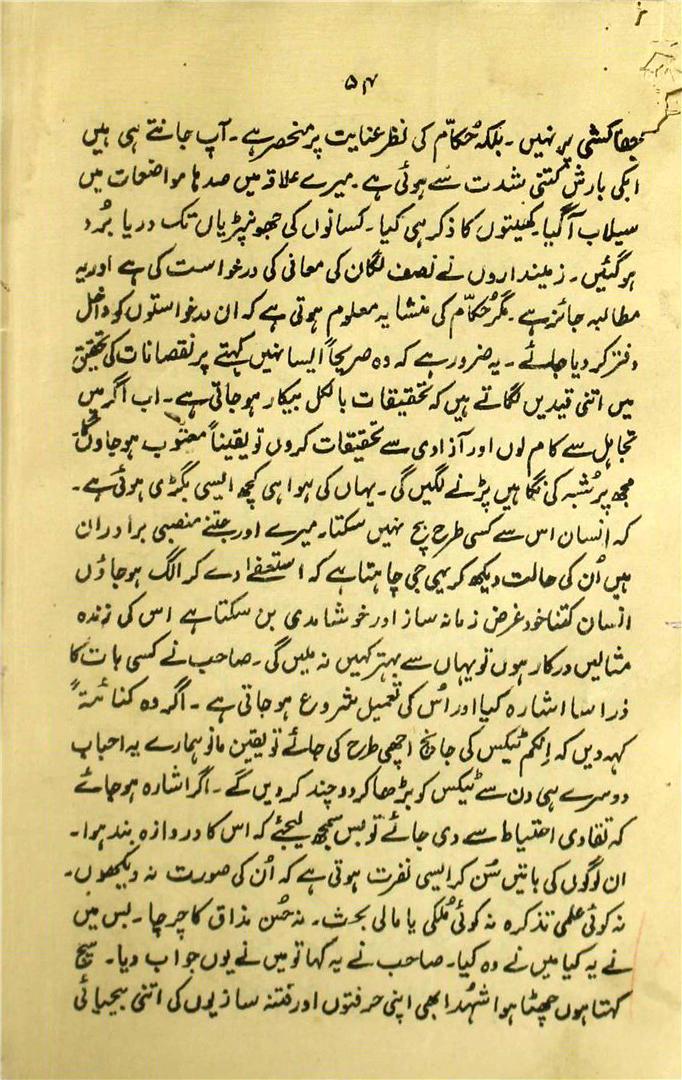 ۵۴
جفاکشی پر نہیں۔ بلکہ حُکاّم کی نظر عنایت پر منحصر ہے۔ آپ جانتے ہی ہیں
ابکی بارش کتنی شدت سے ہوئی ہے۔ میرے علاقہ میں صدہا مواضعات میں
سیلاب آگیا۔ کھیتوں کا ذکر ہی کیا۔ کسانوں کی جھونپڑیاں تک دریا بُرد
ہوگئیں۔ زمینداروں نے نصف لگان کی معافی کی درخواست کی ہے اور یہ
مطالبہ جائز ہے۔ مگر حُکاّم کی منشا یہ معلوم ہوتی ہے کہ ان درخواستوں کو داخل
دفتر کر دیا جائے۔ یہ ضرور ہے کہ وہ صریحاً ایسا نہیں کہتے پر نقصانات کی تحقیق
میں اتنی قیدیں لگاتے ہیں کہ تحقیقات بالکل بیکار ہو جاتی ہے۔ اب اگر میں
تجاہل سے کام لوں اور آزادی سے تحقیقات کروں تو یقیناً معتوب ہو جاؤں گا۔
مجھ پر شُبہ کی نگاہیں پڑنے لگیں گی۔ یہاں کی ہوا ہی کچھ ایسی بگڑی ہوئی ہے۔
کہ انسان اس سے کسی طرح بچ نہیں سکتا۔ میرے اور جتنے منصبی برادران
ہیں اُن کی حالت دیکھ کر یہی جی چاہتا ہے کہ استعفے دے کر الگ ہو جاؤں
انسان کتنا خود غرض زمانہ ساز اور خوشامدی بن سکتا ہے اس کی زندہ
مثالیں درکار ہوں تو یہاں سے بہتر کہیں نہ ملیں گی۔ صاحب نے کسی بات کا
ذرا سا اشارہ کیا اور اُس کی تعمیل شروع ہو جاتی ہے۔ اگر وہ کنائتہً
کہہ دیں کہ اِنکم ٹیکس کی جانچ اچھی طرح کی جائے تو یقین مانو ہمارے یہ احباب
دوسرے ہی دن سے ٹیکس کو بڑھا کر دو چند کر دیں گے۔ اگر اشارہ ہو جائے
کہ تقاوی احتیاط سے دی جائے تو بس سمجھ لیجئے کہ اس کا دروازہ بند ہوا۔
ان لوگوں کی باتیں سُن کر ایسی نفرت ہوتی ہے کہ اُن کی صورت نہ دیکھوں۔
نہ کوئی علمی تذکرہ نہ کوئی مُلکی یا مالی بحث۔ نہ حُسن مذاق کا چرچا۔ بس میں
نے یہ کیا میں نے وہ کیا۔ صاحب نے یہ کہا تو میں نے یوں جواب دیا۔ سچ
کہتا ہوں چھٹا ہوا شُہدا بھی اپنی حرفتوں اور فتنہ سازیوں کی اتنی بیحیائی